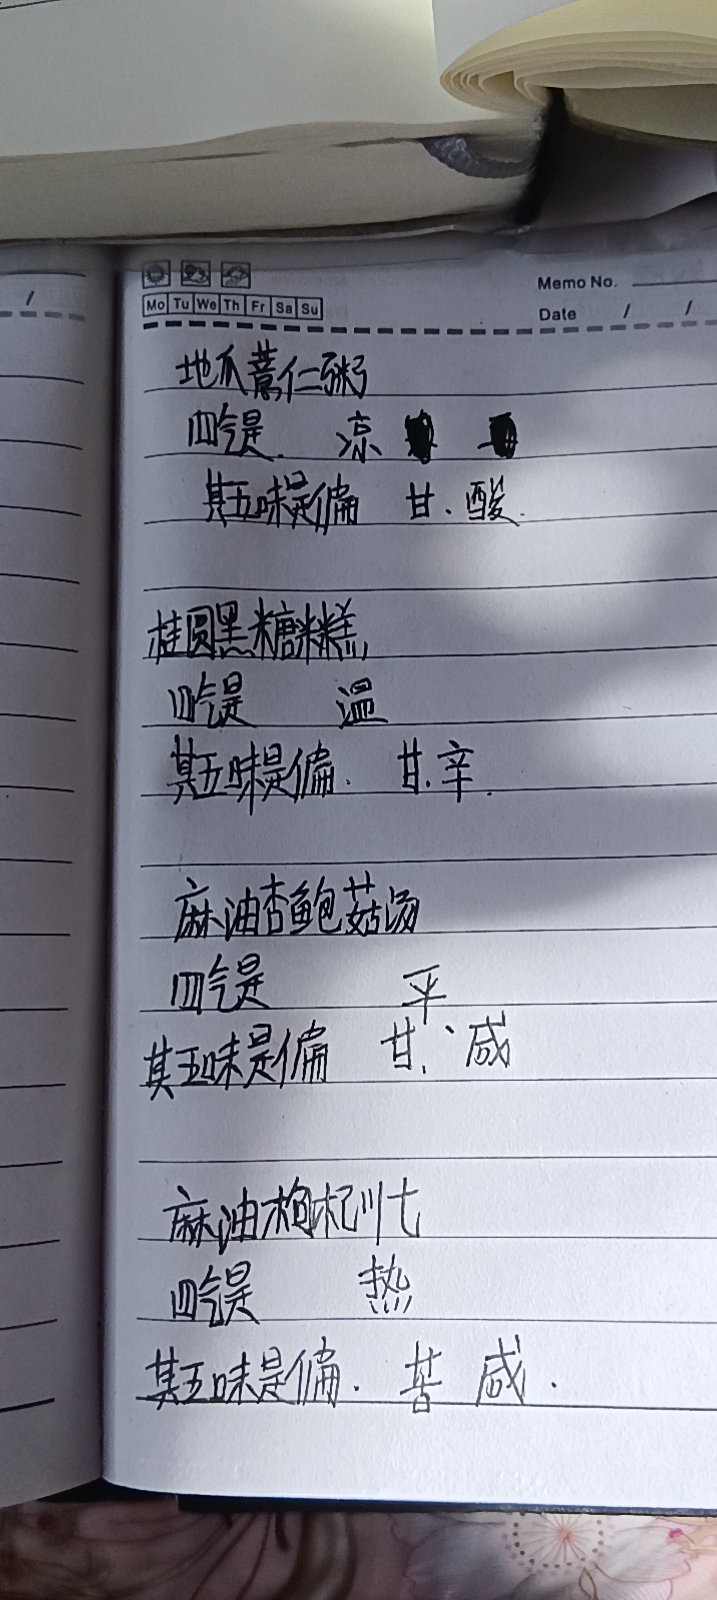 Memo No.
Mo Tu We Th Fr Sa Su
Date / /
/
地瓜薏仁粥
四气是. 凉
其五味是偏 甘、酸.
桂圆黑糖糕
四气是 温
其五味是偏. 甘.辛.
麻油杏鲍菇汤
四气是 平
其五味是偏 甘、咸
麻油枸杞川七
四气是 热
其五味是偏. 苦 咸.